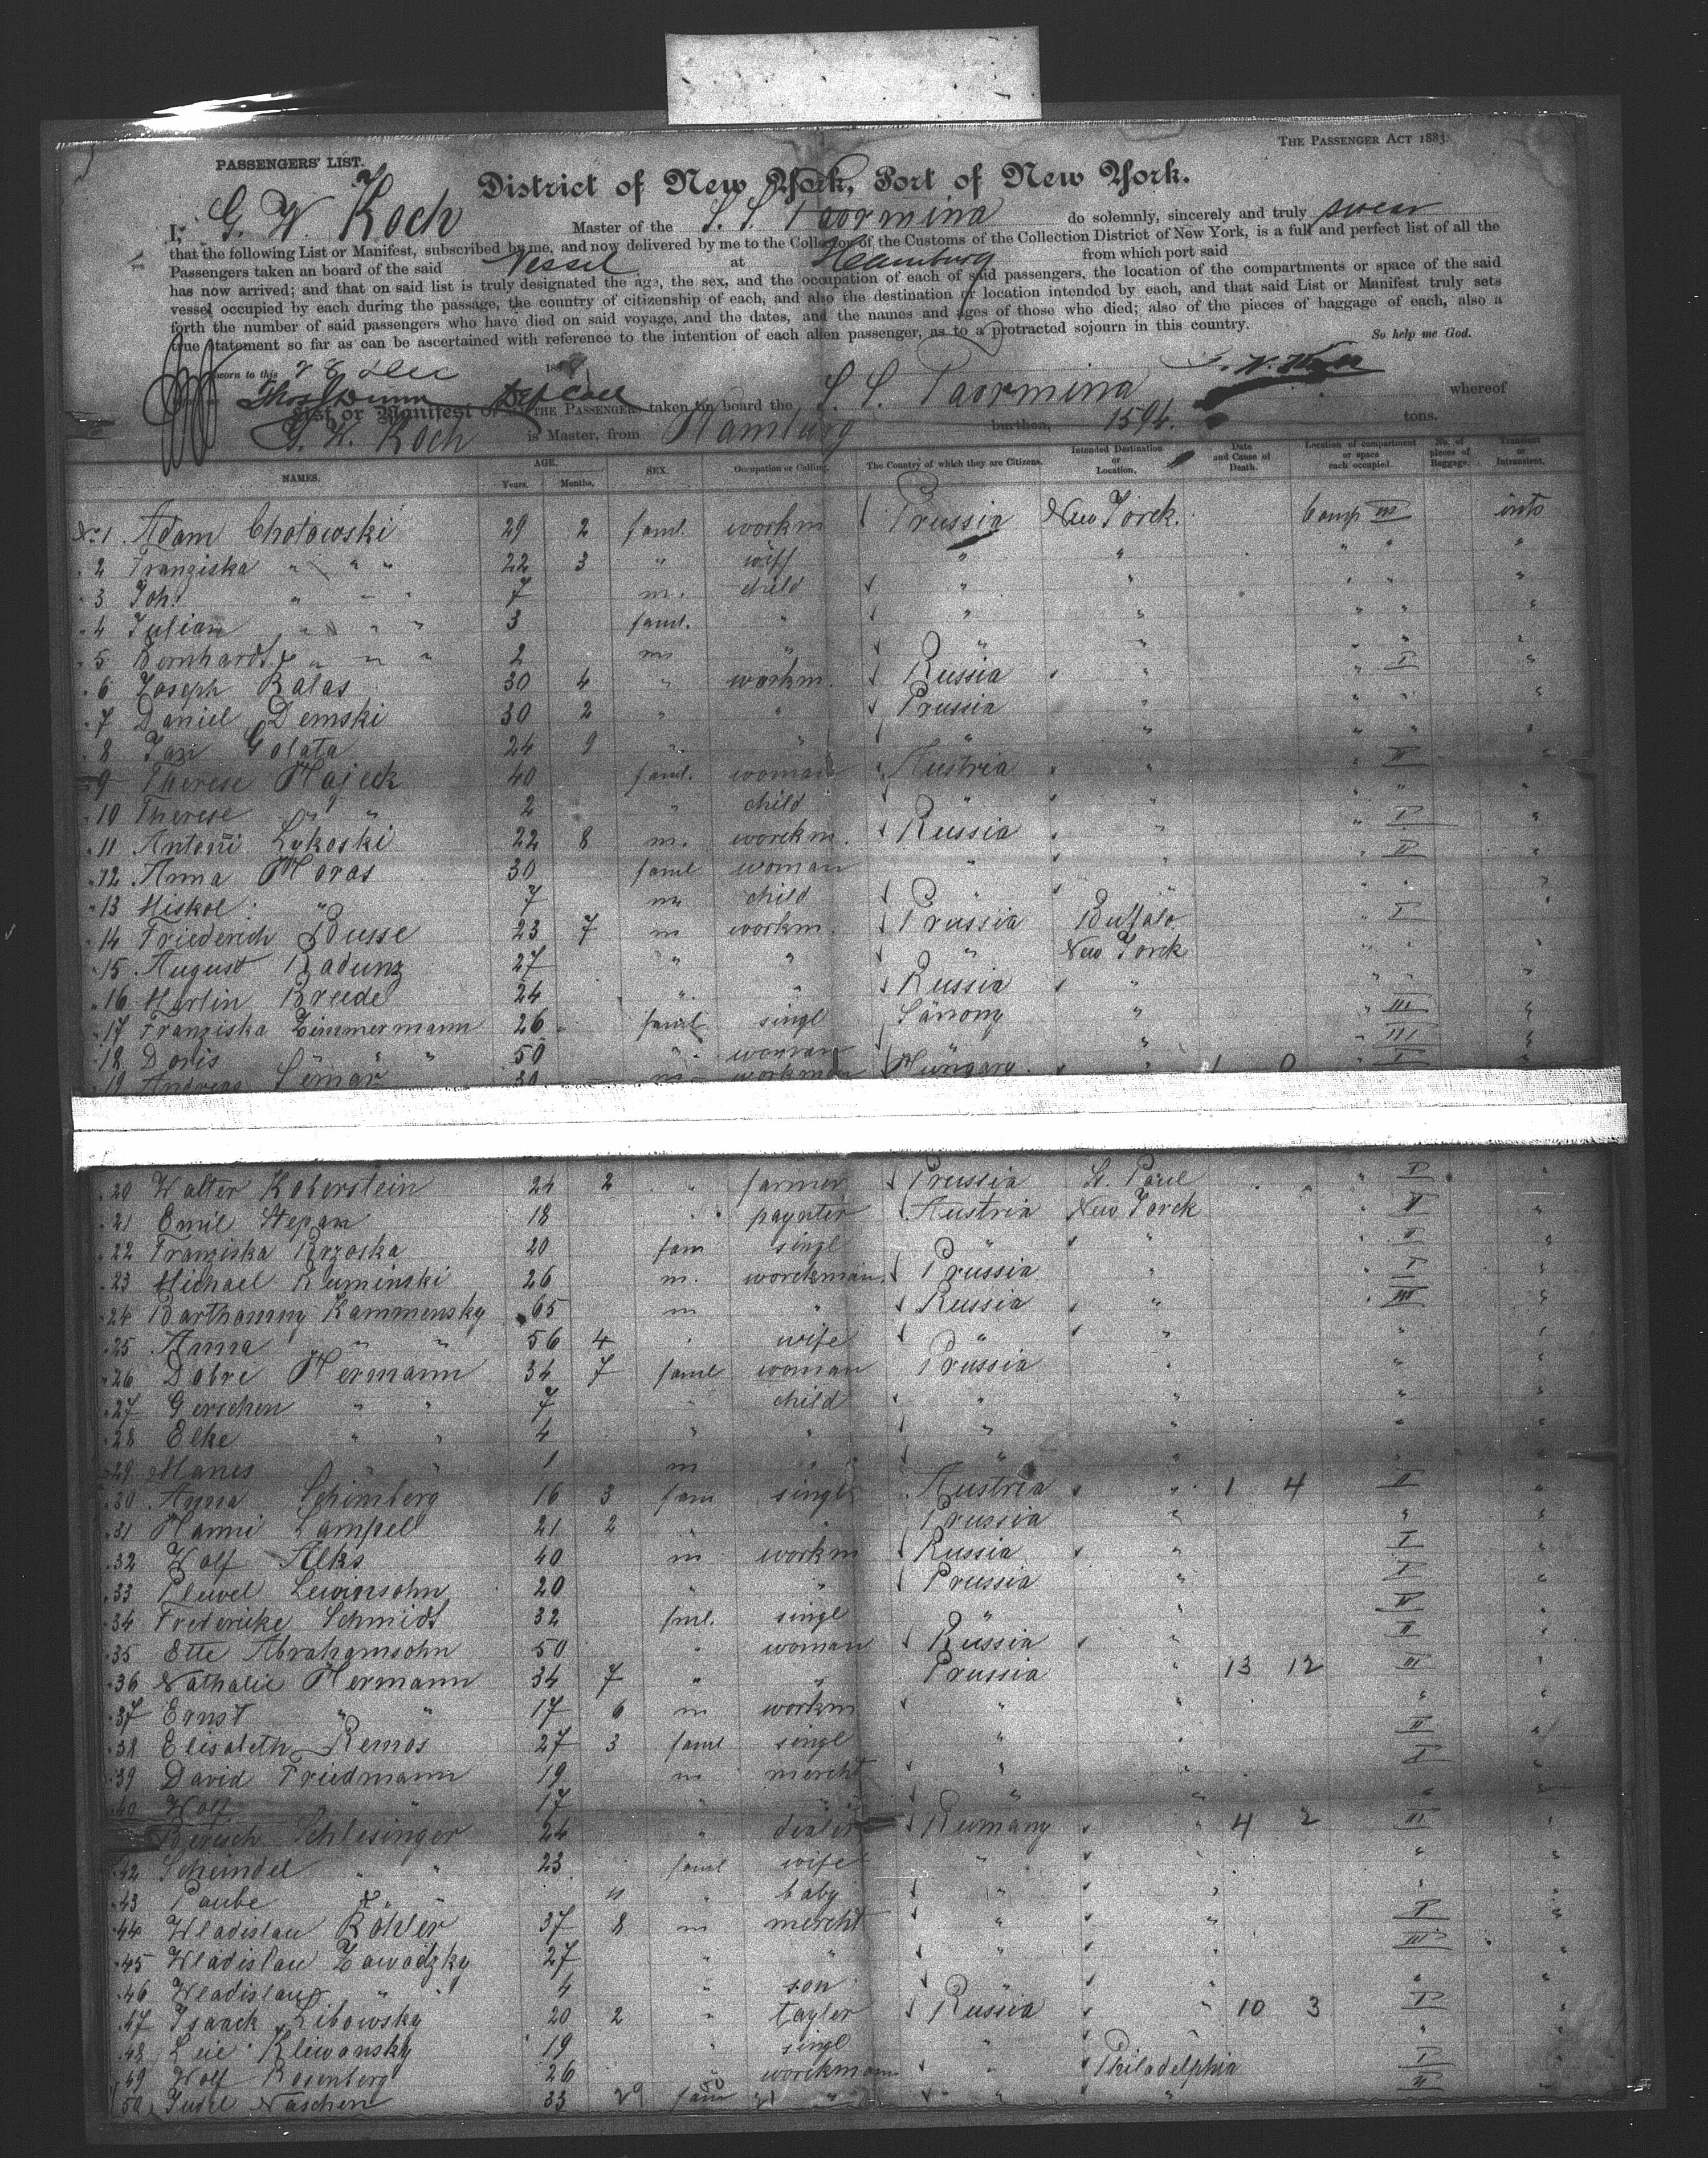 THE PASSENGER ACT 1883.
PASSENGERS' LIST.
District of New York, Port of New York.
I, G. W. Koch Master of the S. S. Taormina do solemnly, sincerely and truly swear
that the following List or Manifest, subscribed by me, and now delivered by me to the Collector of the Customs of the Collection District of New York, is a full and perfect list of all the
Passengers taken an board of the said Vessel at Hamburg from which port said
has now arrived; and that on said list is truly designated the age, the sex, and the occupation of each of said passengers, the location of the compartments or space of the said
vessel occupied by each during the passage, the country of citizenship of each, and also the destination or location intended by each, and that said List or Manifest truly sets
forth the number of said passengers who have died on said voyage, and the dates, and the names and ages of those who died; also of the pieces of baggage of each, also a
true statement so far as can be ascertained with reference to the intention of each alien passenger, as to a protracted sojourn in this country. So help me God.
Sworn to this 28 Dec 188
Thos Dunn Dep Coll
List or Manifest OF ALL THE PASSENGERS taken on board the S. S. Taormina whereof
G. W. Koch is Master, from Hamburg burthen, 1594. tons.
NAMES. AGE. Years. Months. SEX. Occupation or Calling. The Country of which they are Citizens. Intended Destination or Location. Date and Cause of Death. Location of compartment or space each occupied. No. of pieces of Baggage. Transient or Intransient.
No 1 Adam Chotowski 29 2 faml. workm Prussia New Yorck. Comp III into
" 2 Franziska " " " 22 3 " wiff " " " " "
" 3 Joh. " " " 7 m. child " " " " "
" 4 Julian " " " 3 faml. " " " " " "
" 5 Bernhardt " " " 2 m " " " " "
" 6 Joseph Kalas 30 4 " workm. Russia " " I "
" 7 Daniel Demski 30 2 " " Prussia " " " "
" 8 Jan Golata 24 9 " " " " " " "
" 9 Therese Hajeck 40 faml. woman Austria " " II "
" 10 Therese " " 2 " child " " " " "
" 11 Antoni Lykoski 22 8 m. workm. Russia " " I "
" 12 Anna Moras 30 faml woman " " " II "
" 13 Miskol " 7 m child " " " " "
" 14 Friederich Busse 23 7 m workm. Prussia Buffalo " I "
" 15 August Radunz 27 " " " New Yorck " " "
" 16 Martin Breede 24 " " Russia " " " "
" 17 Franziska Zimmermann 26 faml singl " III "
" 18 Doris " " " 50 " woman " " III "
" 19 Andreas Semar 30 m workman Hungary " 1 0 " I
" 20 Walter Koberstein 24 2 " farmer Prussia St. Paul " I "
" 21 Emil Stepan 18 " paynter Austria New Yorck " II "
" 22 Franziska Brzoska 20 fam singl " " " II "
" 23 Michael Kuminski 26 m. worckman Prussia " " I "
" 24 Barthommy Kammensky 65 m " Russia " " III "
" 25 Anna " " 56 4 " wife " " " "
" 26 Dobre Hermann 34 7 faml woman Prussia " " "
" 27 Gerschen " " 7 " child " " " "
" 28 Elke " " 4 " " " " " "
" 29 Manes " " 1 m " " " " "
" 30 Anna Schimberg 16 3 fam singl Austria " 1 4 II "
" 31 Hanni Lampel 21 2 " " Prussia " " "
" 32 Wolf Alks 40 m workm Russia " I "
" 33 Plewel Lewinsohn 20 " " Prussia " I "
" 34 Fredericke Schmidt 32 fml. singl " " II "
" 35 Ette Abrahamsohn 50 " woman Russia " II "
" 36 Nathalie Hermann 34 7 " " Prussia " 13 12 III "
" 37 Ernst " " 17 6 m workm " " " "
" 38 Elisabeth Remos 27 3 faml singl " " II "
" 39 David Friedmann 19 m mercht " " I "
" 40 Wolf " 17 " " " " " "
Schlesinger 24 " dealer Rumany " 4 2 III "
" 42 Scheindel " " 23 faml wife " " " "
" 43 Paube " " 11 " baby " " " "
" 44 Wladislau Köhler 37 8 m mercht " " I "
" 45 Wladislau Zawadzky 27 " " " " III "
" 46 Wladislaus " " 4 " son " " " "
" 47 Isaack Libowsky 20 2 " tayler Russia " 10 3 I "
" 48 Leie Klewansky 19 " singl " " " "
" 49 Wolf Rosenberg 26 " worckmann " Philadelphia I "
" 50 Judel Naschen 33 29 fam 21 " " " II "